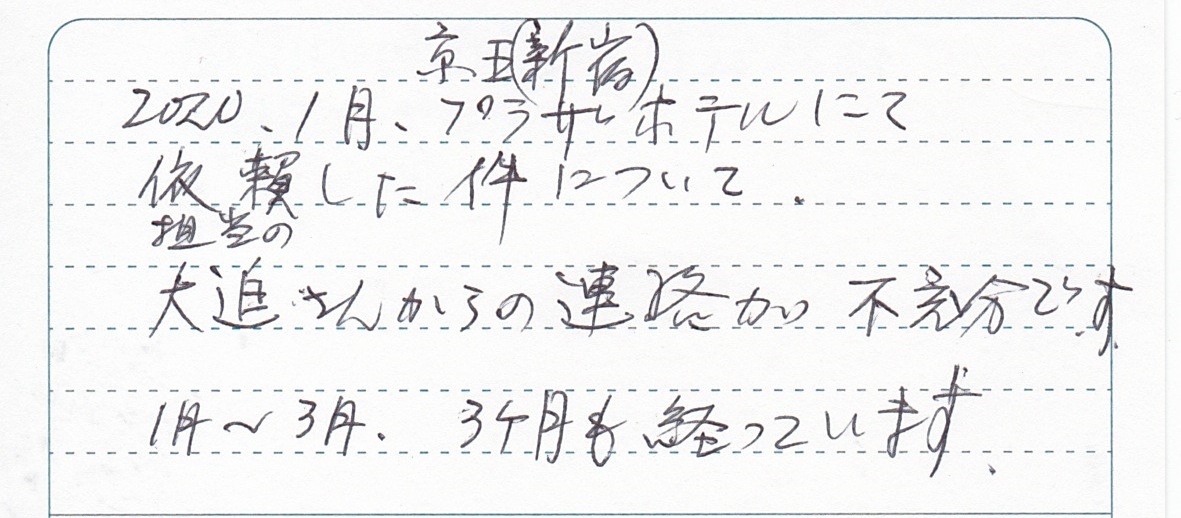 京王(新宿)
2020、1月、プラザホテルにて
依頼した件について.
担当の
大追さんからの連絡が不充分です
1月～3月. 3ケ月も経っています.